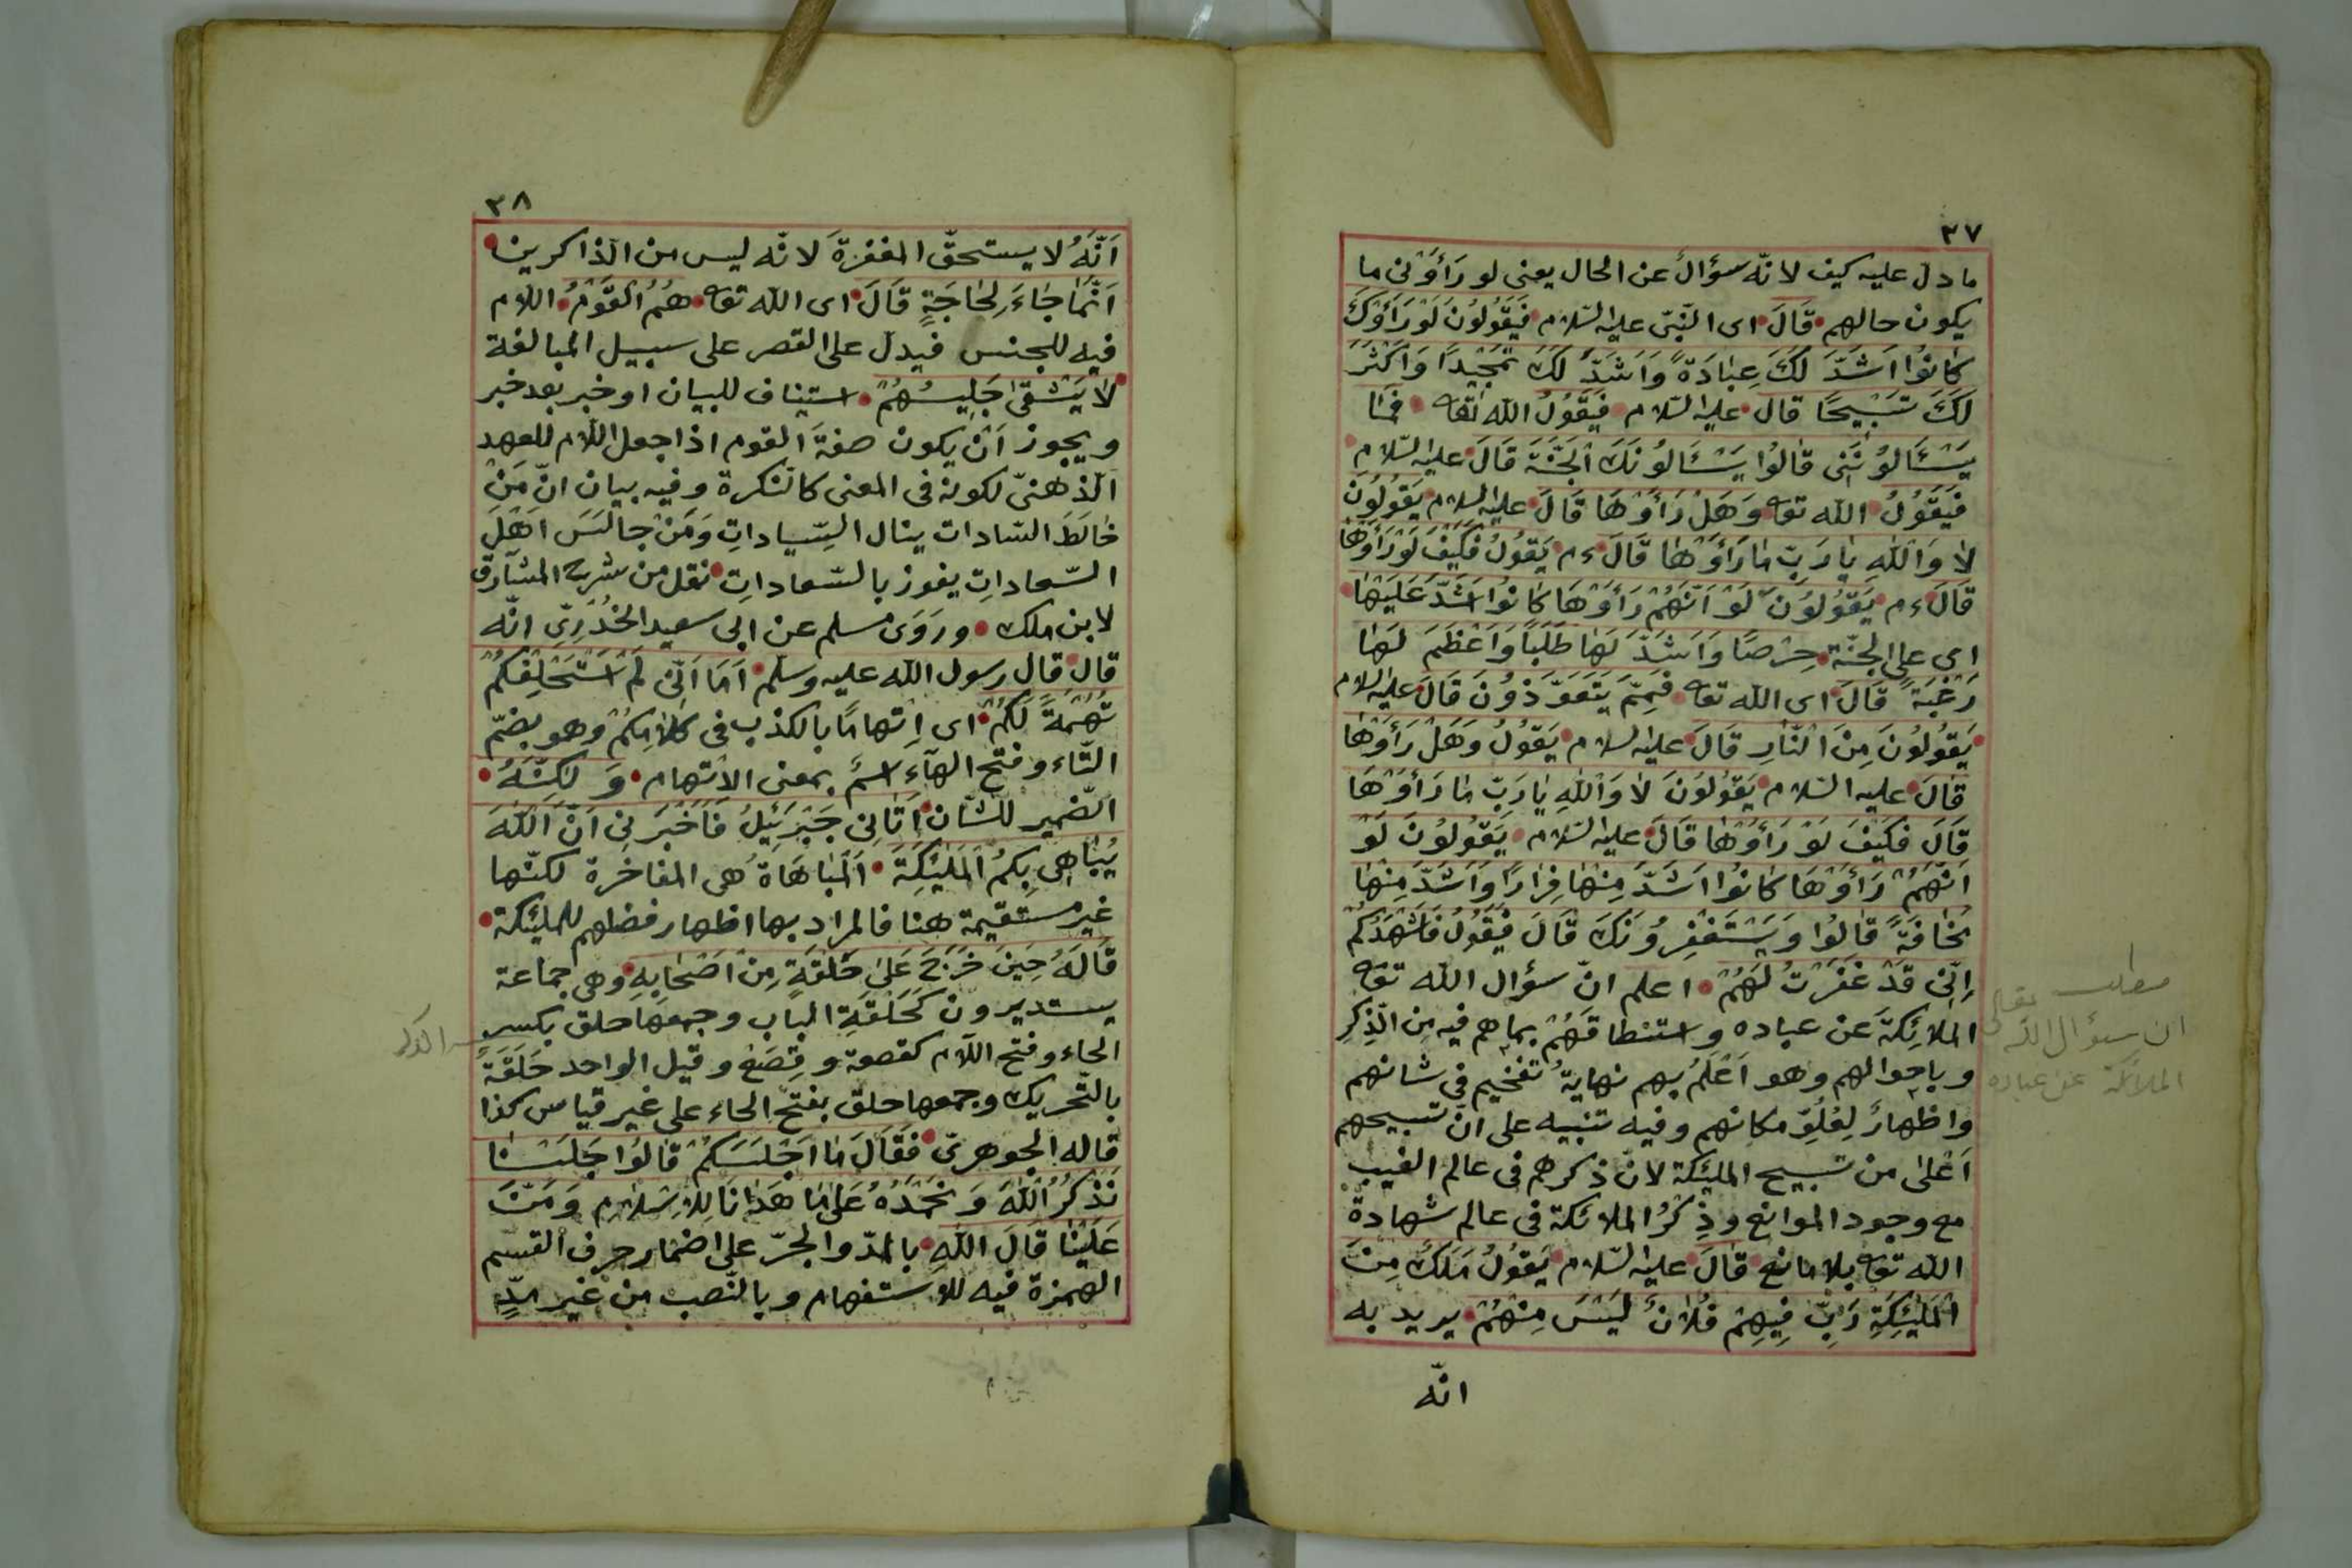 ٣٧
ما دلّ عليه كيف لانّه سؤال عن الحال يعنى لو رَأَوْنى ما
يكون حالهم قَالَ اى النّبىّ عليه السّلام فَيَقُولُونَ لَوْ رَأَوْكَ
كَانُوا اَشَدَّ لَكَ عِبَادَةً وَاَشَدَّ لَكَ تَمْجِيدًا وَاَكْثَرَ
لَكَ تَسْبِيحًا قال عليه السّلام فَيَقُولُ الله تعا فَمَا
يَسْئَالُونَنِى قَالُوا يَسْئَالُونَكَ الْجَنَّةَ قَالَ عليه السّلام
فَيَقُولُ الله تعا وَهَلْ رَأَوْهَا قَالَ عليه السلام يَقُولُونَ
لَا وَاللهِ يَا رَبِّ مَا رَأَوْهَا قَالَ ءم يَقُولُ فَكَيْفَ لَوْ رَأَوْهَا
قَالَ ءم يَقُولُونَ لَوْ اَنَّهُمْ رَأَوْهَا كَانُوا اَشَدَّ عَلَيْهَا
اى على الجنّة حِرْصًا وَاَشَدَّ لَهَا طَلَبًا وَاَعْظَمَ لَهَا
رَغْبَةً قَالَ اى الله تعا فَمِمَّ يَتَعَوَّذُونَ قَالَ عليه السلام
يَقُولُونَ مِنَ النَّارِ قَالَ عليه السلام يَقُولُ وَهَلْ رَأَوْهَا
قَالَ عليه السّلام يَقُولُونَ لَا وَاللهِ يَا رَبِّ مَا رَأَوْهَا
قَالَ فَكَيْفَ لَوْ رَأَوْهَا قَالَ عليه السّلام يَقُولُونَ لَوْ
اَنَّهُمْ رَأَوْهَا كَانُوا اَشَدَّ مِنْهَا فِرَارًا وَاَشَدَّ مِنْهَا
مَخَافَةً قَالُوا وَيَسْتَغْفِرُونَكَ قَالَ فَيَقُولُ فَاُشْهِدُكُمْ
اِنِّى قَدْ غَفَرْتُ لَهُمْ اعلم انّ سؤال الله تعا
الملائِكةَ عن عباده واستنطاقَهُمْ بما هم فيه من الذّكرِ
وباحوالهم وهو اَعْلَمُ بهم نهايةً تفخيم فى شانهم
واظهارٌ لِعُلُوِّ مكانهم وفيه تنبيه على انّ تسبيحهم
اَعْلٰى من تسبيح الملئكة لانّ ذكرهم فى عالم الغيب
مع وجود الموانع وذِكْرُ الملائكة فى عالم شهادة
الله تعا بلا مانع قَالَ عليه السّلام يَقُولُ مَلَكٌ مِنَ
الْمَلٰئِكَةِ رَبِّ فِيهِمْ فُلَانٌ لَيْسَ مِنْهُمْ يريد به
انّه
مطلب
ان سؤال الله تعالى
الملائكة عن عباده
٣٨
اَنَّهُ لا يستحقّ المغفرةَ لانّه ليس من الذاكرين
اِنَّمَا جَاءَ لِحَاجَةٍ قَالَ اى الله تعا هُمُ الْقَوْمُ اللام
فيه للجنس فيدلّ على القصر على سبيل المبالغة
لَا يَشْقٰى جَلِيسُهُمْ استيناف للبيان او خبر بعد خبر
ويجوز اَنْ يكون صفةَ القوم اذا جعل اللّام للعهد
الذّهنىّ لكونه فى المعنى كالنّكرة وفيه بيان انّ مَنْ
خَالَطَ السّادات ينال السّيادات وَمَنْ جالَسَ اَهْلَ
السّعاداتِ يفوز بالسّعاداتِ نقل من شرح المشارق
لابن ملك ورَوَى مسلم عن ابى سعيد الخُدْرِىّ انّه
قال قال رسول الله عليه وسلّم اَمَا اِنّى لَمْ اَسْتَحْلِفْكُمْ
تُهَمَةً لَكُمْ اى اِتهامًا بالكذب فى كلامِكُمْ وهو بضمّ
التّاء وفتح الهآء اسمٌ بمعنى الاتهام وَ لٰكِنَّهُ
الضّمير للشّان اَتَانِى جَبْرَئِيلُ فَاَخْبَرَنِى اَنَّ اللهَ
يُبَاهِى بِكُمُ الْمَلٰئِكَةَ اَلْمُبَاهَاةُ هى المفاخرة لكنّها
غير مستقيمة هنا فالمراد بها اظهار فضلهم للملئكة
قَالَهُ حِينَ خَرَجَ عَلٰى حَلْقَةٍ مِنْ اَصْحَابِهِ وهى جماعة
يستديرون كَحَلْقَةِ الباب وجمعها حلق بكسر
الحاء وفتح اللّام كقصعة وقِصَع وقيل الواحد حَلَقَة
بالتّحريك وجمعها حلق بفتح الحاء على غير قياس كذا
قاله الجوهرىّ فَقَالَ مَا اَجْلَسَكُمْ قَالُوا جَلَسْنَا
نَذْكُرُ اللهَ وَنَحْمَدُهُ عَلٰى مَا هَدَانَا لِلْاِسْلَامِ وَمَنَّ
عَلَيْنَا قَالَ اللهِ بالمدّ والجرّ على اضمار حرف القسم
الهمزة فيه للاستفهام وبالنّصب من غير مدٍّ